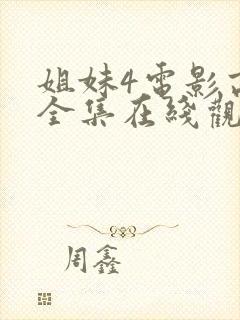 姐妹4電影
全集在綫觀
周鑫